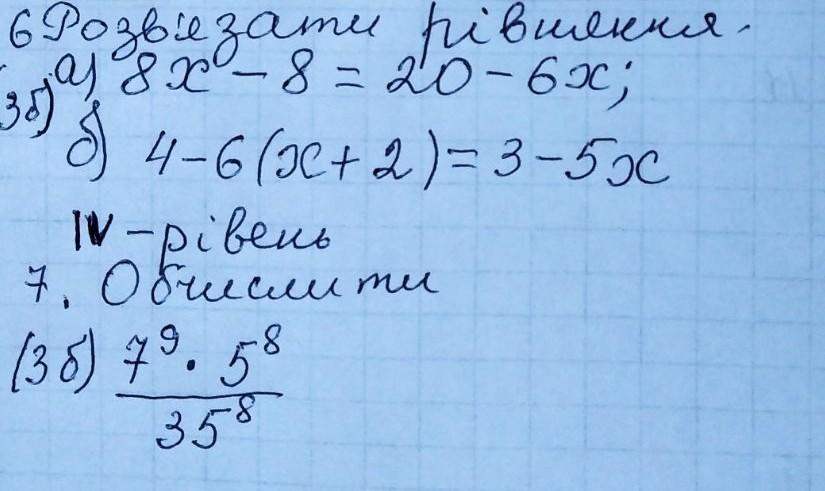 6 Розв'язати рівняння.
(3б) а) 8x - 8 = 20 - 6x;
б) 4 - 6(x + 2) = 3 - 5x
IV - рівень
7. Обчислити
(3б) 7⁹ · 5⁸
35⁸